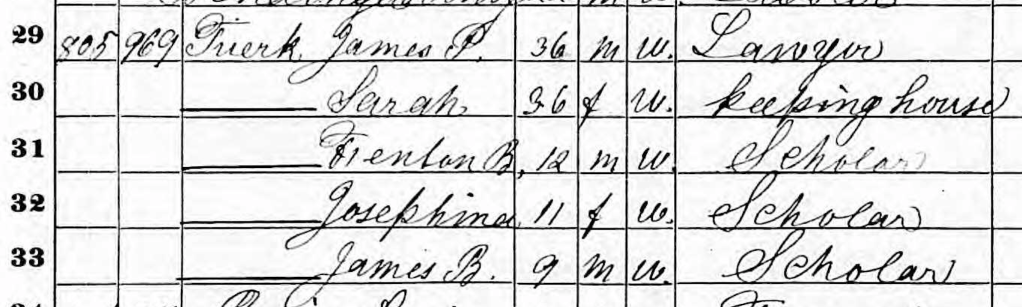 m W.
29 805 969 Tuerk, James P. 36 m W. Lawyer
30 ——— Sarah 36 f W. keeping house
31 ——— Trenton B. 12 m W. Scholar
32 ——— Josephine 11 f W. Scholar
33 ——— James B. 9 m W. Scholar